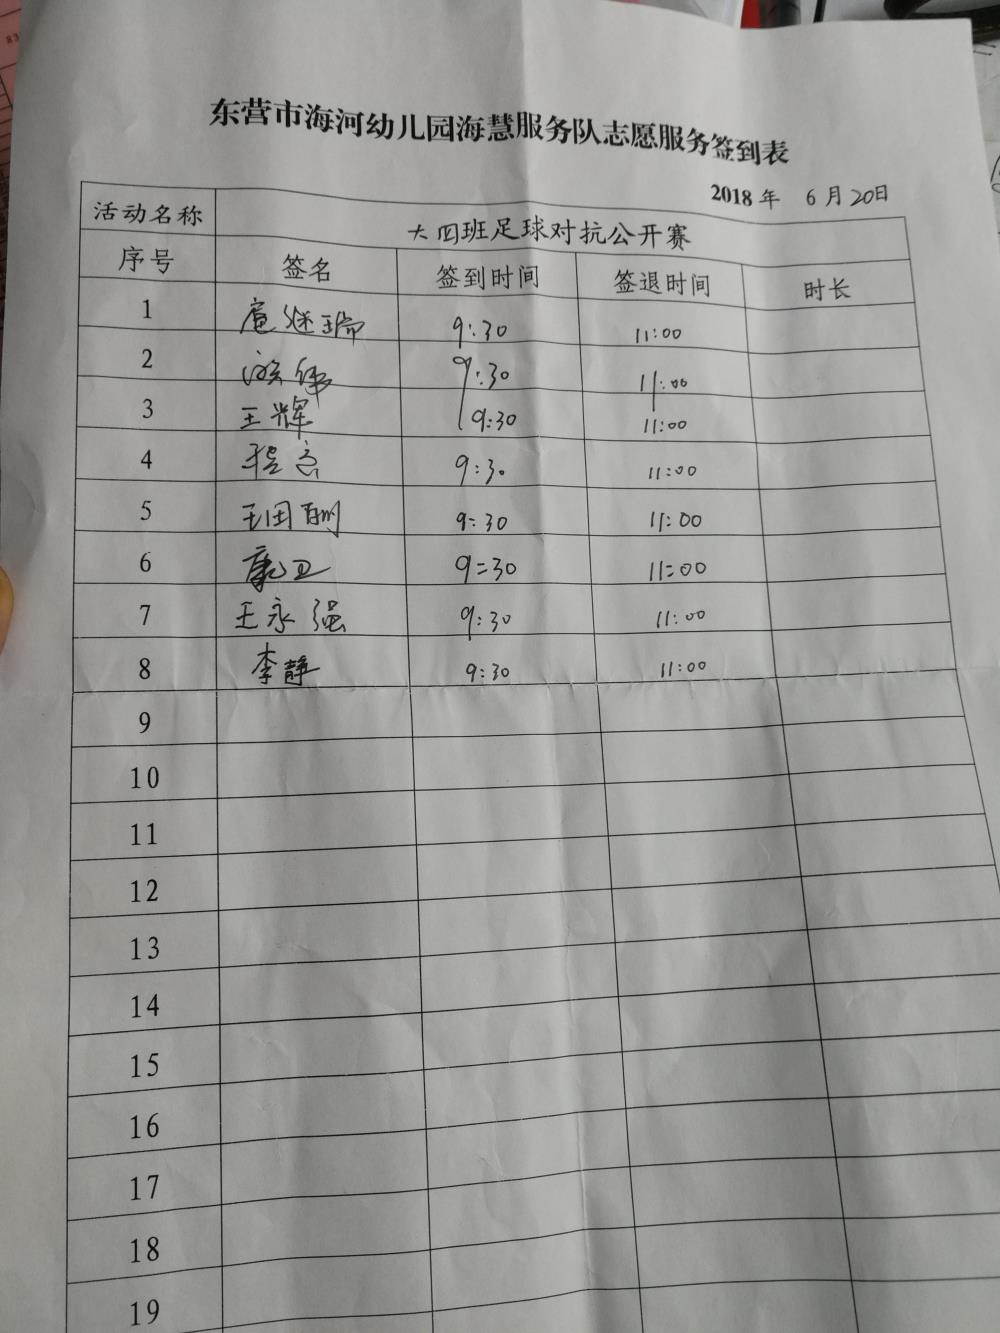 东营市海河幼儿园海慧服务队志愿服务签到表
2018 年 6 月 20 日
活动名称 大四班足球对抗公开赛
序号 签名 签到时间 签退时间 时长
1 扈继瑞 9:30 11:00
2 9:30 11:00
3 王辉 9:30 11:00
4 程亮 9:30 11:00
5 王田 9:30 11:00
6 康卫 9:30 11:00
7 王永强 9:30 11:00
8 李静 9:30 11:00
9
10
11
12
13
14
15
16
17
18
19